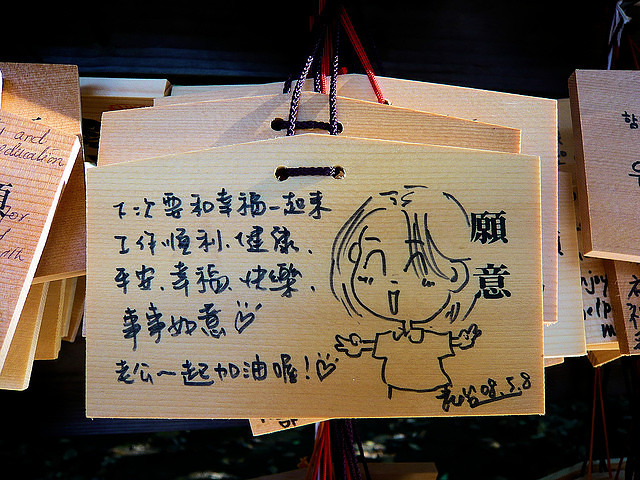 下次要和幸福一起來
工作順利、健康、
平安、幸福、快樂、
事事如意♡
老公一起加油喔!♡
願意
08.5.8
and
education
for
njoy
elp
m